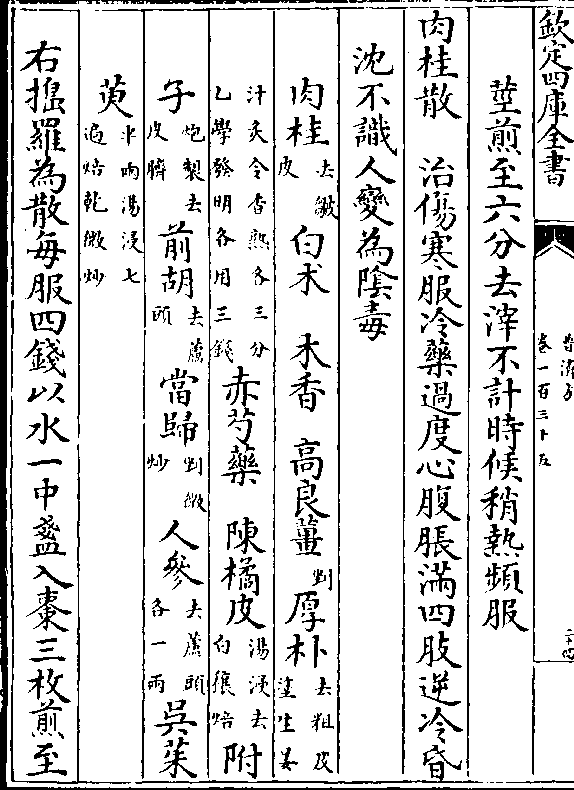 欽定四庫全書
普濟方
卷一百三十五
二十四
莖煎至六分去滓不計時候稍熱頻服
肉桂散　治傷寒服冷藥過度心腹脹滿四肢逆冷昏
沈不識人變為陰毒
肉桂去皴皮　白朮　木香　高良薑剉　厚朴去粗皮塗生姜
汁炙令香熟各三分乙學發明各用三錢　赤芍藥　陳橘皮湯浸去白穰焙　附
子炮製去皮臍　前胡去蘆頭　當歸剉微炒　人參去蘆頭各一兩　吳茱
萸半兩湯浸七遍焙乾微炒
右搗羅為散每服四錢以水一中盞入棗三枚煎至